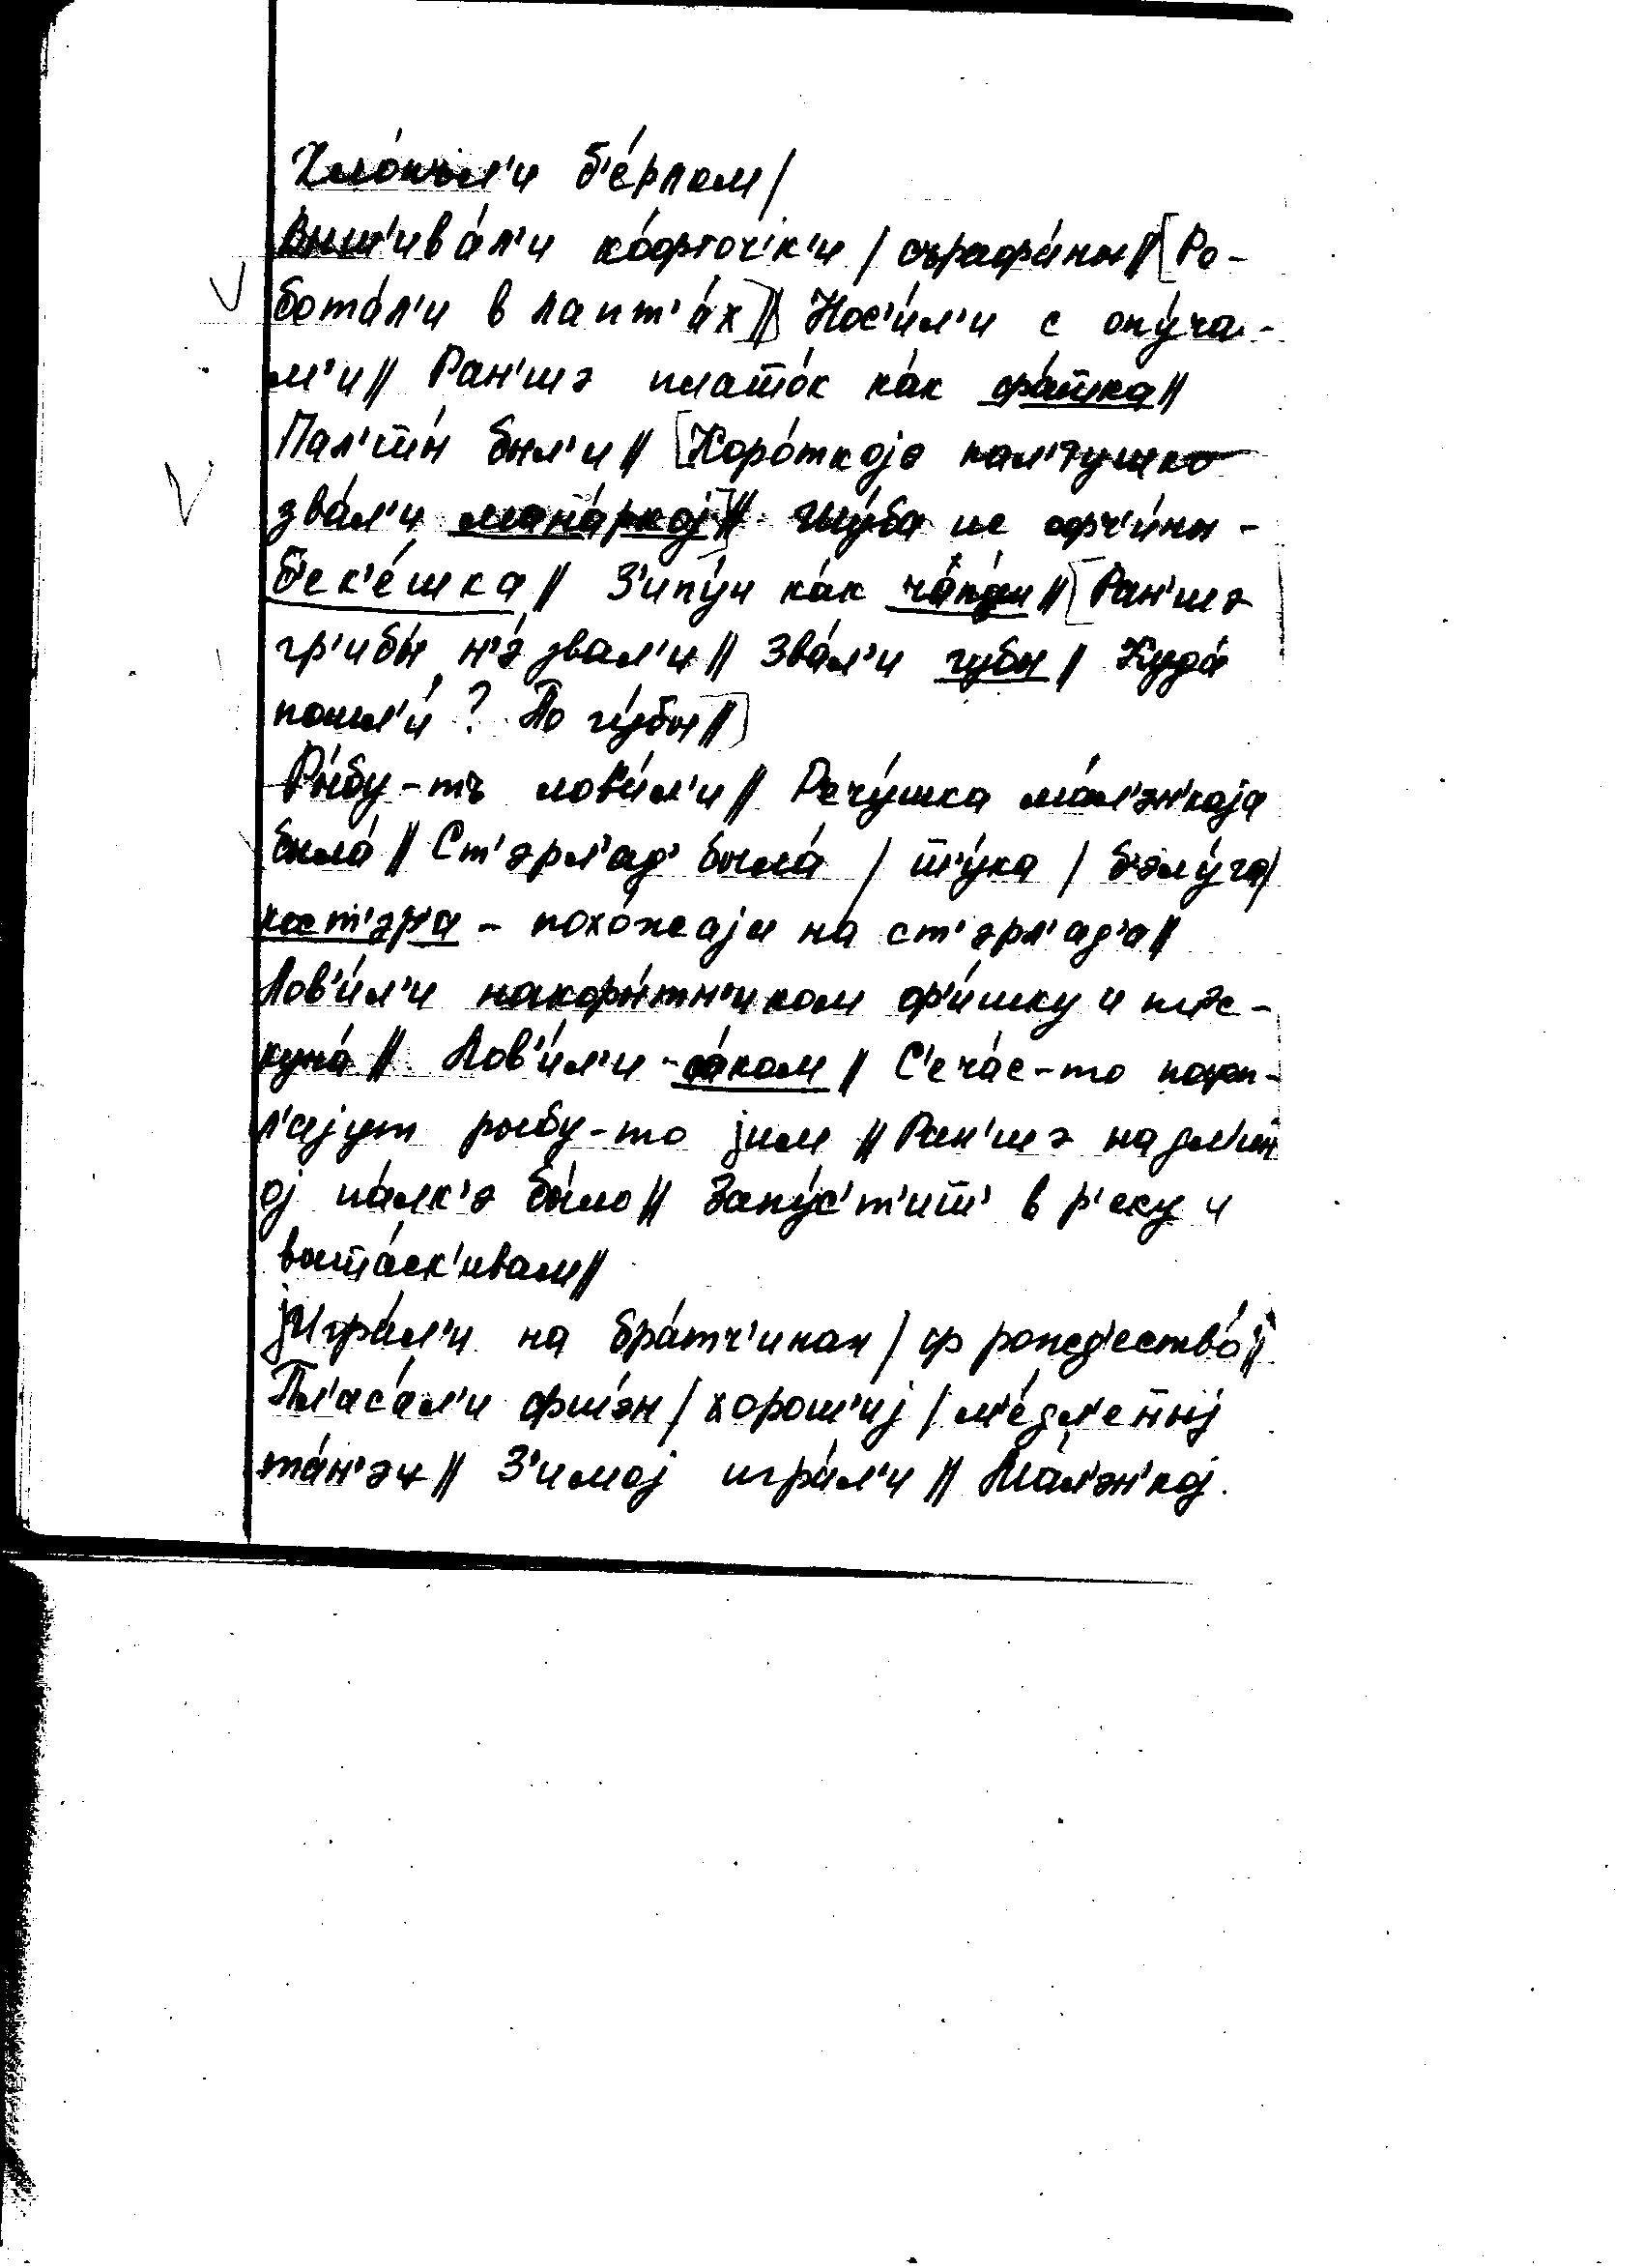 Хло́пъл'и б'е́рлом/
Выш'ива́л'и ко́фточ'к'и / съраφа́ны// [Ро-
бота́л'и в лапт'а́х]// Нос'и́л'и с ону́ча-
м'и// Ран'шэ плато́к ка́к фа́тка//
Пал'ти́н был'и// [Коро́ткоjе пал'тушко
зва́л'и мана́ркоj]// Шу́ба ис офч'и́ны -
б'ек'е́шка// З'ипу́н ка́к чапа́н// [Ран'шэ
гр'ибы́ н'э́ звал'и// Зва́л'и губы// Куда́
пошл'и́? По гу́бы//]
Ры́бу-тъ лов'и́л'и// Речу́шка ма́л'эн'каjа
была́// Ст'эрл'ад' была́ / щ'у́ка / б'элу́га/
кост'эр'а - похо́жаjа на́ ст'эрл'ад'а//
Лов'и́л'и накоры́тн'иком ф'и́шку и п'ес-
куна́// Лов'и́л'и - са́ком// С'еча́с-то
л'аjут рыбу-то jим// Ран'шэ на дл'ин
оj па́лк'э бы́ло// Запу́с'т'ит' в р'еку и
выта́ск'ивам//
jигра́л'и на бра́тч'инах / ф рожд'ество́//
Пл'аса́л'и / хорош'иj / м'е́дл'еныj
та́н'эц// З'имоj игра́л'и// Ма́л'эн'коj.